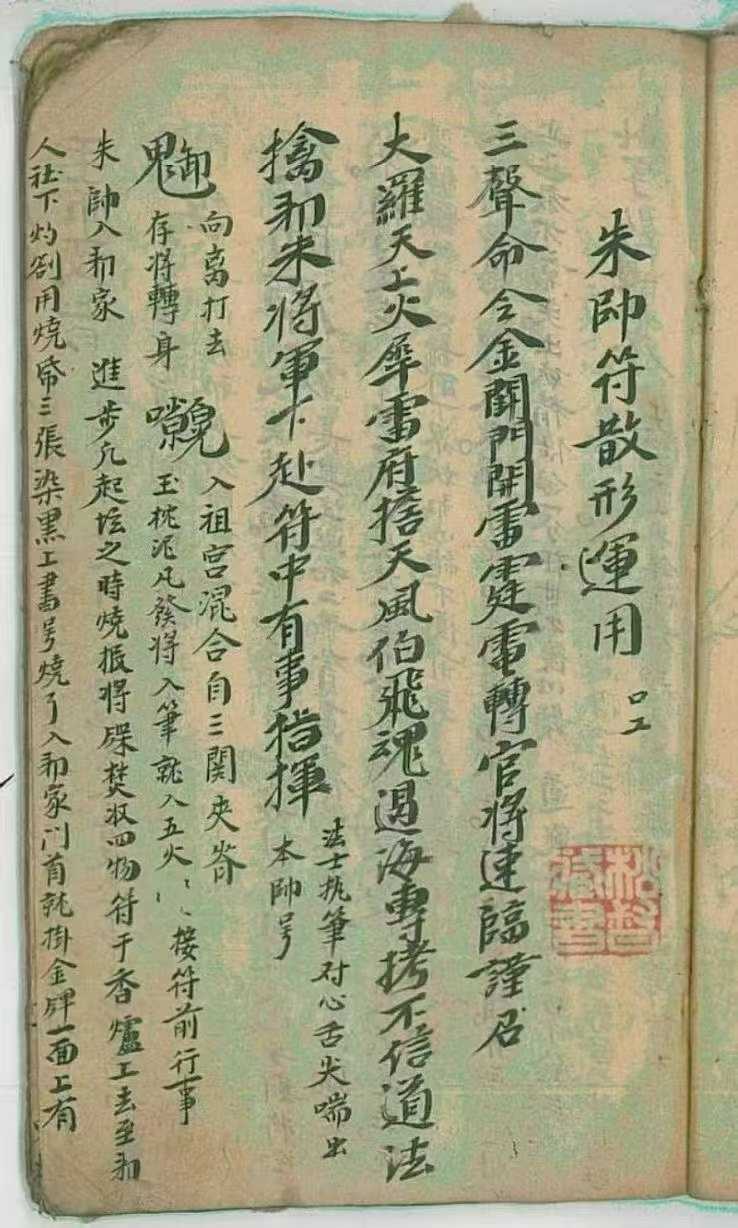 朱帥符散形運用
三聲命令金闕門開雷霆電轉官将速臨謹召
大羅天上火犀雷府捨天風伯飛魂過海專拷不信道法
擒邪朱将軍下赴符中有事指揮 法士执筆对心舌尖喘出
本帥号
向离打去 入祖宫混合自三関夹脊
存将轉身 玉枕泥凡發将入筆就入五火 接符前行事
朱帥入邪家 進步凡起坛之時燒報将牒焚収四物符于香爐上去至邪
人社下灼劄用燒帋三張染黑上書号燒了入邪家门首就掛金牌一面上有